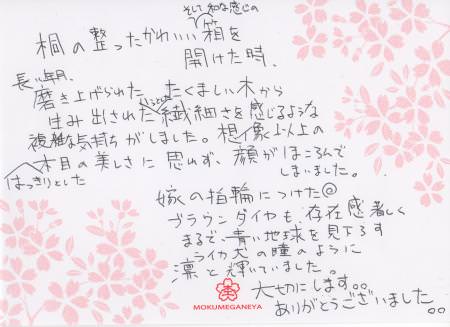 そして和な感じの
桐の整ったかわいい箱を
開けた時、
長い年月、
磨き上げられた、たくましい木から
生み出された繊細さを感じるような
複雑な気持ちがしました。想像以上の
はっきりとした
木目の美しさに思わず、顔がほころんで
しまいました。
嫁の指輪につけた@
ブラウンダイヤも、存在感著しく
まるで、青い地球を見下ろす
ライカ犬の瞳のように
凛と輝いていました。
大切にします。。
ありがとうございました
。。
MOKUMEGANEYA